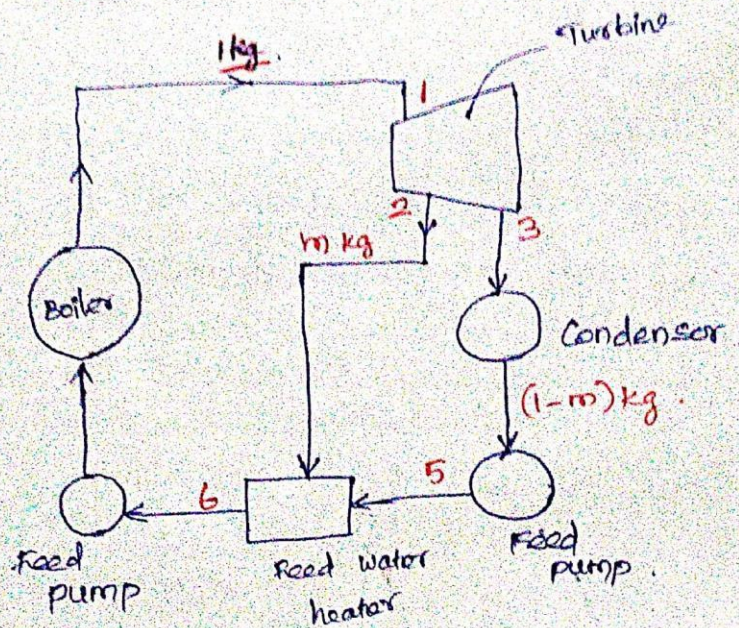 Turbine
1kg.
1
2
3
m kg
Boiler
Condensor
(1-m) kg.
5
6
Feed
pump
Feed water
heater
Feed
pump.